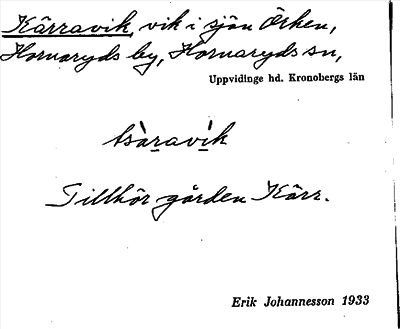 Kärravik, vik i sjön Örken,
Hornaryds by, Hornaryds sn,
Uppvidinge hd. Kronobergs län
tsàravı̀k
Tillhör gården Kärr.
Erik Johannesson 1933